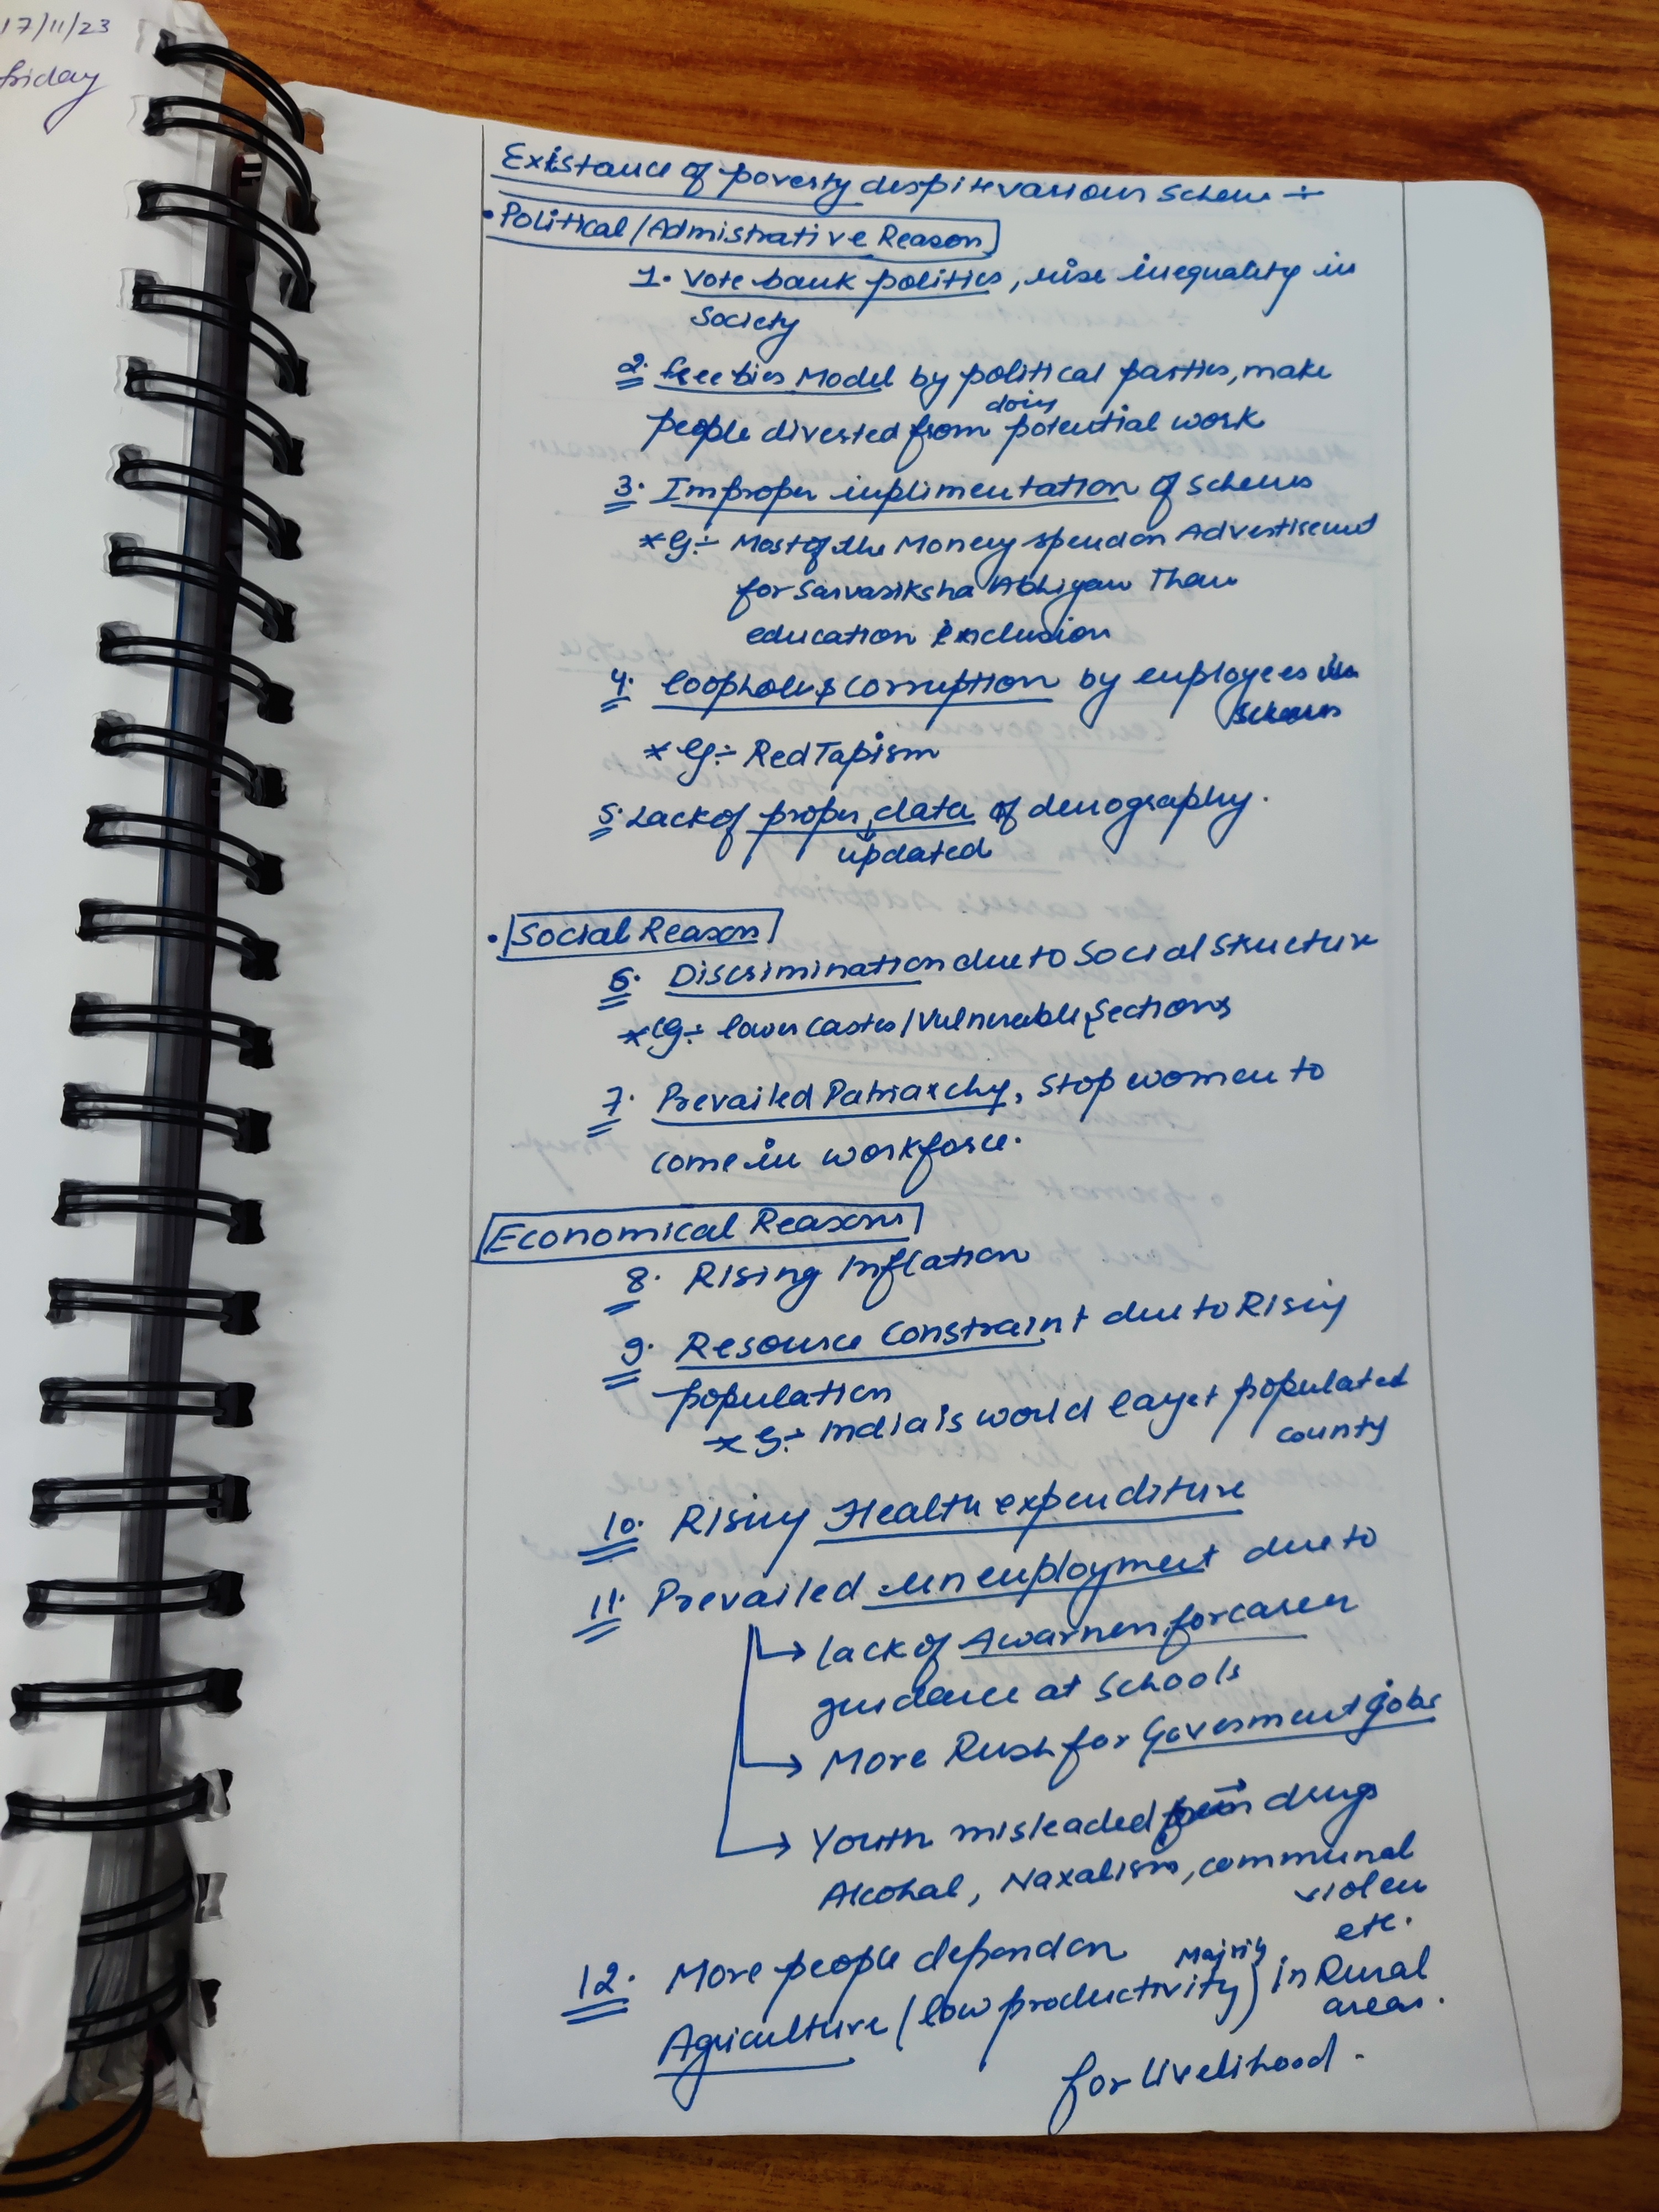 17/11/23
friday
Existance of poverty despite various Scheme ÷
• Political/Admistrative Reason
1. Vote bank politics, rise inequality in
Society
2. freebies Model by political parties, make
people diversted from doing potential work
3. Improper inplimentation of schemes
*Eg:- Most of the Money spend on Advertisement
for Sarvasiksha Abhiyan Than
education inclusion
4. loopholes & corruption by employees in
schemes
*Eg:- Red Tapism
5. Lack of proper, data of demography.
updated
• Social Reason
6. Discrimination due to Social Structure
*Eg:- lower Castes/Vulnerable Sections
7. Prevailed Patriarchy, stop women to
come in workforce.
Economical Reasons
8. Rising Inflation
9. Resource Constraint due to Rising
population
*Eg:- India is world largest populated
county
10. Rising Health expenditure
11. Prevailed unemployment due to
→ Lack of Awarness for career
guidance at Schools
→ More Rush for Goverment jobs
→ Youth misleaded → drugs
Alcohal, Naxalism, communal
violen
etc.
12. More people depend on
Agriculture (low productivity) Majority in Rural
areas.
for livelihood.